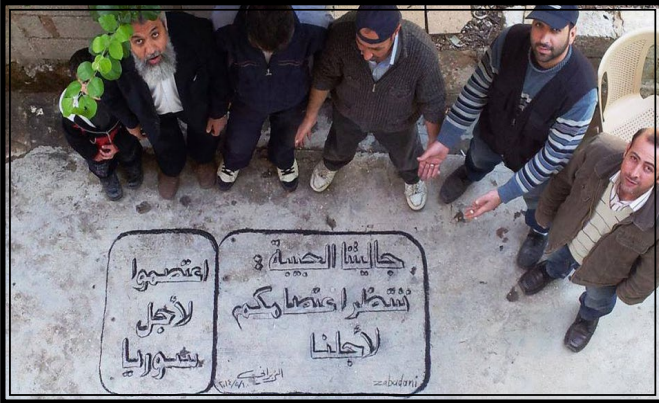 جاليتنا الحبيبة :
ننتظر اعتصامكم
لأجلنا
zabadani
اعتصموا
لأجل
سوريا